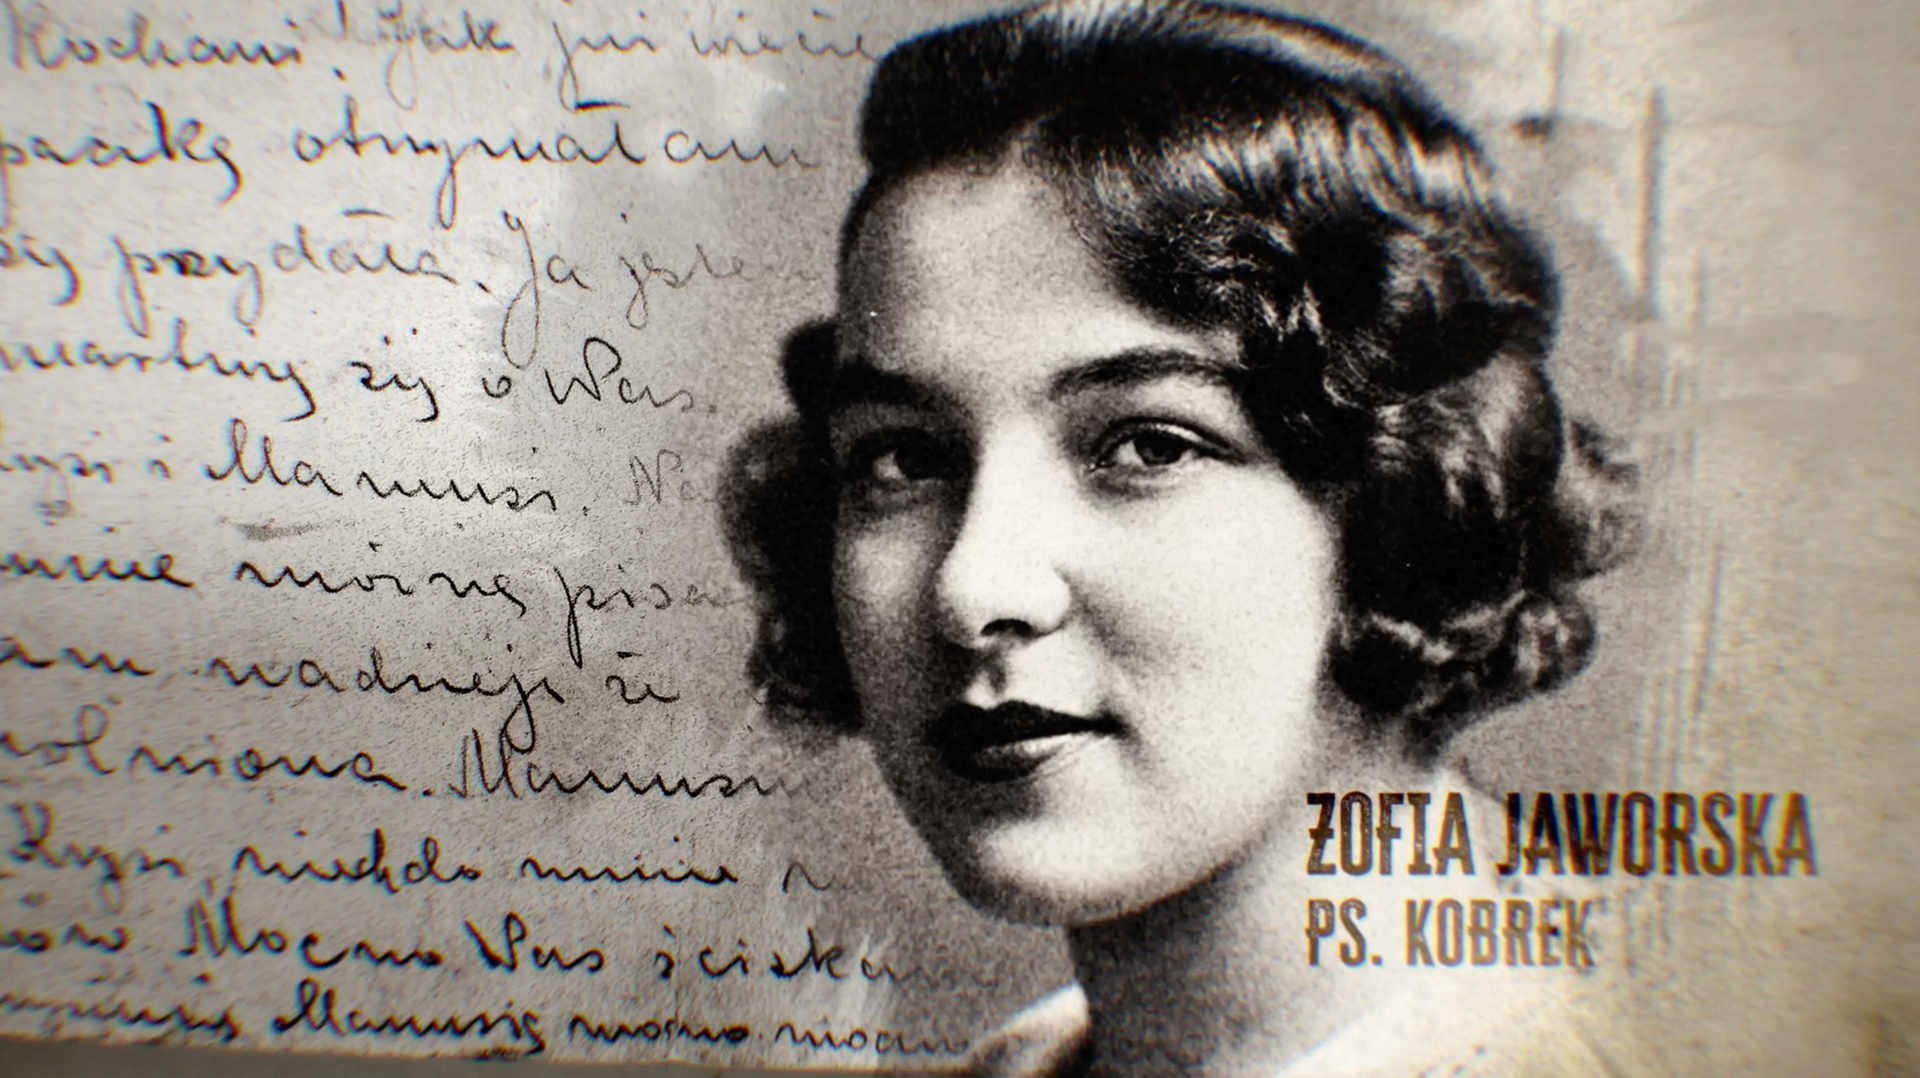 Kochani! Jak już wiecie
paczkę otrzymałam
się przydała. Ja jestem
martwię się o Was.
Krysi i Mamusi. Na
mnie można pisać
mam nadzieję że
zwolniona. Mamusiu
Krysi, niech do mnie
Mocno Was ściskam
Mamusię mocno mocno
ZOFIA JAWORSKA
PS. KOBREK